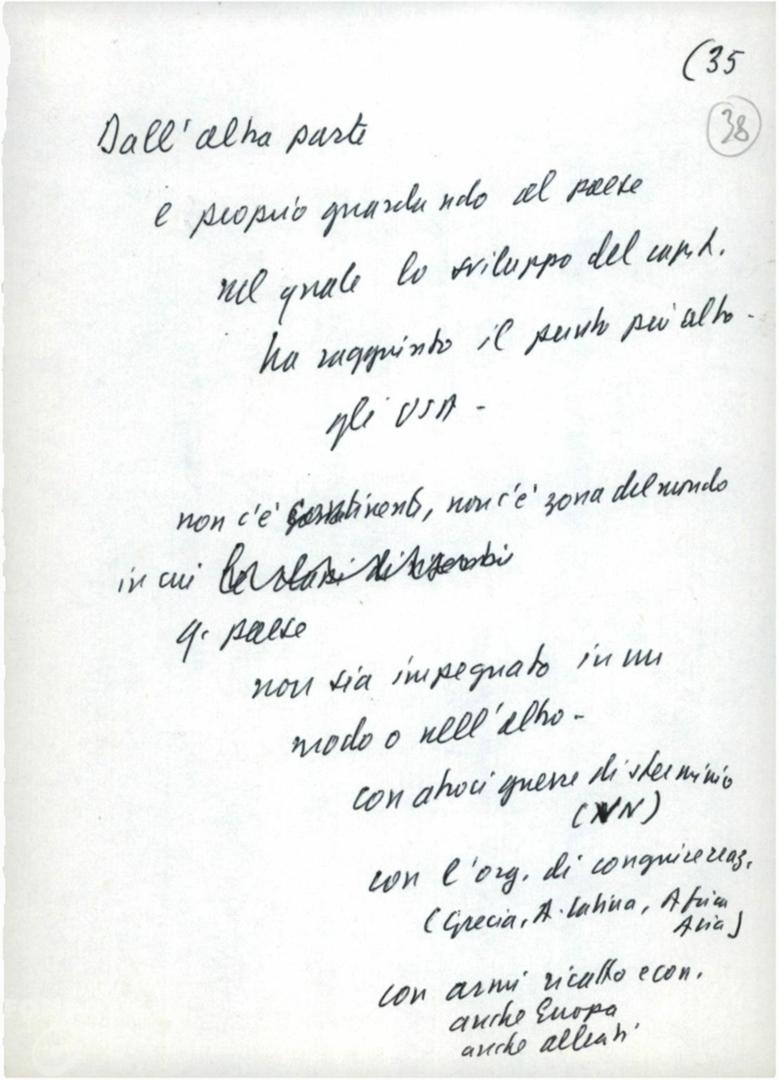 (35
38
Dall'altra parte
e proprio guardando al paese
nel quale lo sviluppo del capit.
ha raggiunto il punto più alto -
gli USA -
non c'è continente, non c'è zona del mondo
in cui
q. paese
non sia impegnato in un
modo o nell'altro -
con atroci guerre di sterminio
(VN)
con l'org. di congiure reaz.
(Grecia, A. Latina, Africa
Asia)
con armi ricatto econ.
anche Europa
anche alleati